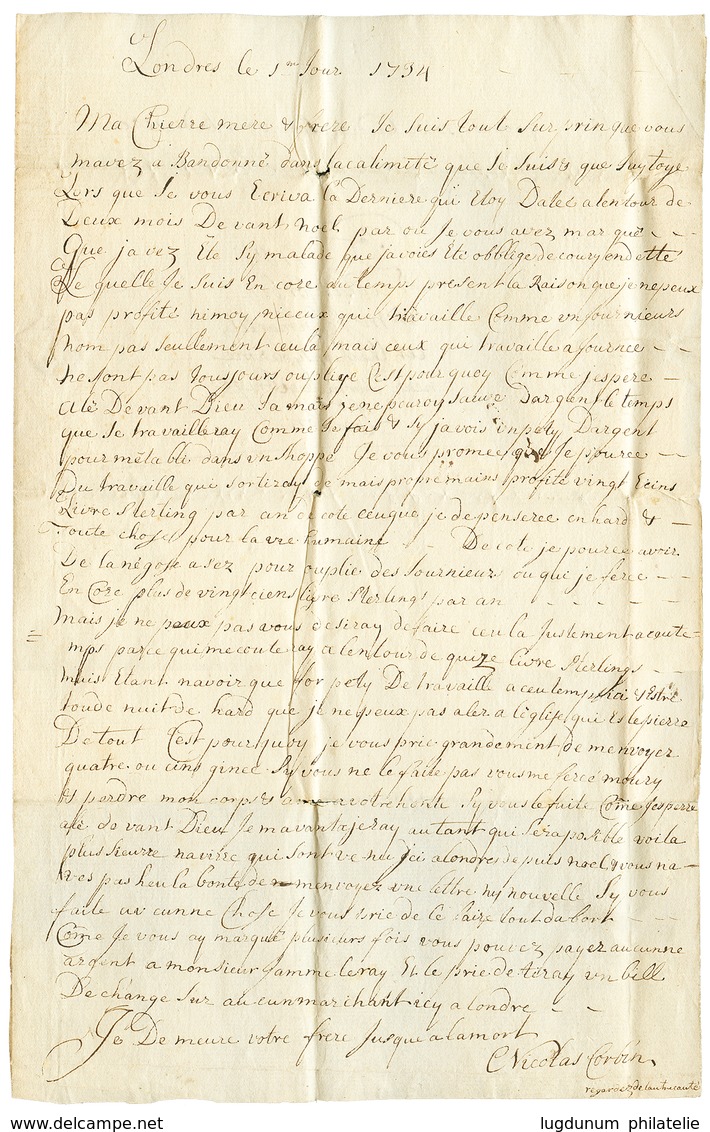 Londres le 1er Jour 1734
Ma Chierre mere & frere Je suis tout surprin que vous
mavez a Bandonné dans lacalimité que Je suis & que suy toye
Lors que Je vous Ecriva la Derniere qui Etoy Dateé alentour de
Deux mois Devant noel par ou Je vous avez marqué
Que javez Ete sy malade que javoies Ete obblige de coury en dette
De quelle Je suis En core au temps present la Raison que je ne peux
pas profité ny moy ny ceux qui travaille Comme un fournieurs
nom pas seullement ceu la mais ceux qui travaille a fournee
ne sont pas Tousjours ouplieye C'est pourquoy Comme jespere
Alé Devant Dieu Jamais je ne pouroy sauvé Dargent le temps
que Je travailleray Comme Je fais & sy javois un pety Dargent
pour métabli dans un shoppe Je vous promee que Je pource
Du travaille qui sortiray de mais propre mains profité vingt & cins
Livre Sterling par an De coté ceuque je depenseree en hard &
Toute chose pour la vie humaine De coté je pouree avoir
De la négose asez pour ouplié des Journieurs ou qui je feree
En Core plus de vingt ciens livre sterlings par an
mais je ne peux pas vous desiray de faire ceu la Justement aceute
mps parce qui me couteray a lentour de quize livre sterlings
mais Etant navoir que for pety De travaille a ceu temps ici & Estre
toude nuit de hard que je ne peux pas aler a l'eglise qui Es le pierre
De tout C'est pour quoy je vous prie grandement de menvoyer
quatre ou cins ginee Sy vous ne le faite pas vous me feree moury
& perdre mon corps & ame a votre henu Sy vous le faite Come Jesperre
alé devant Dieu Je mavantajeray autant qui sera posible voila
plusieurre navirre qui sont venu jci a londres depuis noel & vous na
ves pas heu la bonté de menvoyez une lettre ny nouvelle Sy vous
faite aucunne Chose Je vous prie de le faire tout dabort
Come Je vous ay marqué plusieurs fois vous pouvez payez aucunne
argent a monsieur gamme leray Et le prie de tiray un bill
De change sur aucun marchant icy a londre
Je De meure votre frere Jusque a la mort
Nicolas Corbin
regardez de lautre cauté
www.delcampe.net
lugdunum philatelie